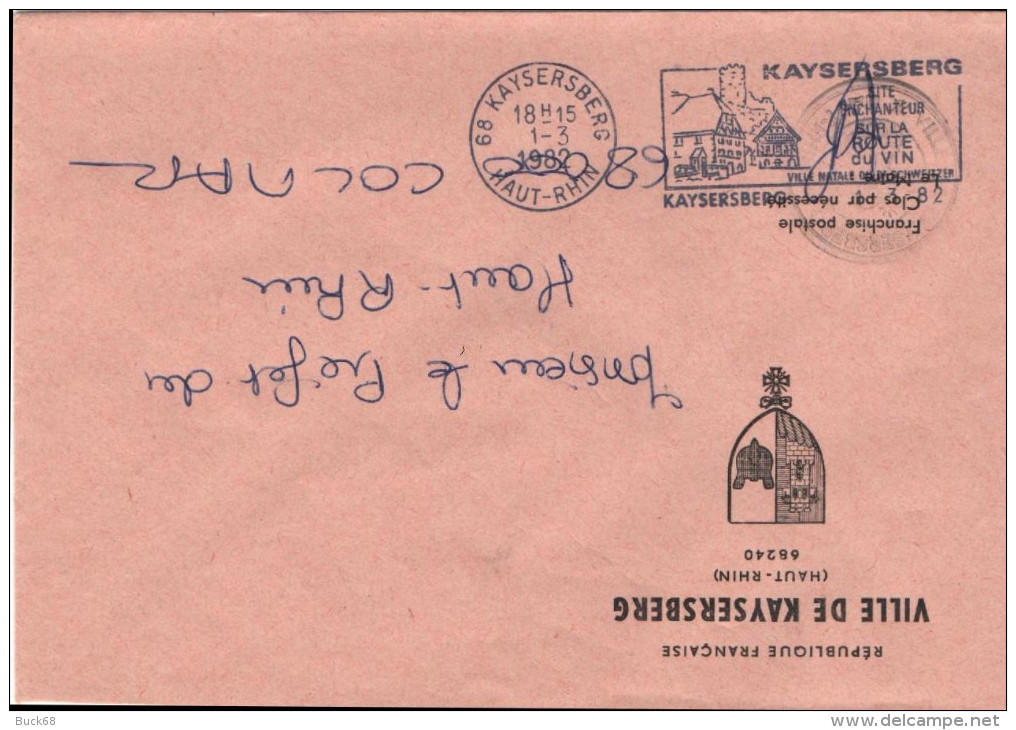 KAYSERSBERG
68 KAYSERSBERG
18H15
1-3
1982
HAUT-RHIN
SITE
ENCHANTEUR
SUR LA
ROUTE
du VIN
VILLE NATALE DU Dr SCHWEITZER
KAYSERSBERG
1 3 82
RÉPUBLIQUE FRANÇAISE
VILLE DE KAYSERSBERG
(HAUT-RHIN)
68240
Franchise postale
Clos par nécessité
Le Maire
Monsieur le Préfet du
Haut-Rhin
68000 COLMAR
Buck68
http://www.delcampe.net